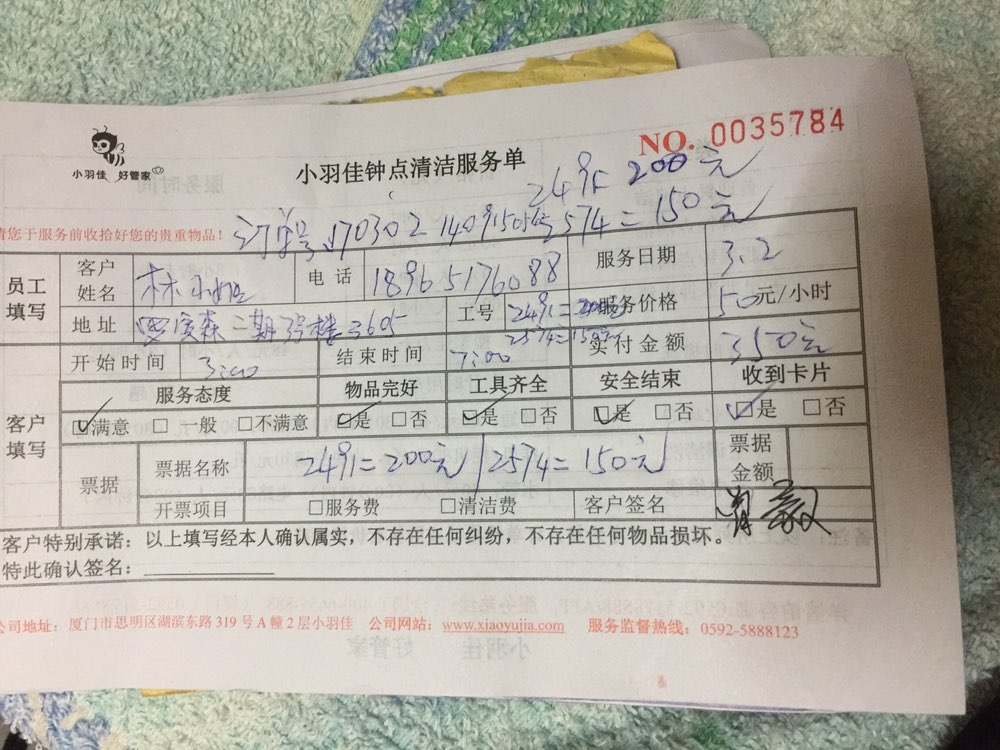 NO. 0035784
小羽佳 好管家
小羽佳钟点清洁服务单
2491 200元
请您于服务前收拾好您的贵重物品!
订单号 2574=150元
员工填写
客户姓名 林小姐 电话 18965176088 服务日期 3.2
地址 二期 3605 工号 2491=200元 2574=150元 服务价格 50元/小时
开始时间 3:00 结束时间 7:00 实付金额 350元
客户填写
服务态度 物品完好 工具齐全 安全结束 收到卡片
☑满意 □一般 □不满意 ☑是 □否 ☑是 □否 ☑是 □否 ☑是 □否
票据 票据名称 2491=200元/2574=150元 票据金额
开票项目 □服务费 □清洁费 客户签名
客户特别承诺:以上填写经本人确认属实,不存在任何纠纷,不存在任何物品损坏。
特此确认签名:
公司地址:厦门市思明区湖滨东路 319 号 A 幢 2 层小羽佳 公司网站:www.xiaoyujia.com 服务监督热线:0592-5888123